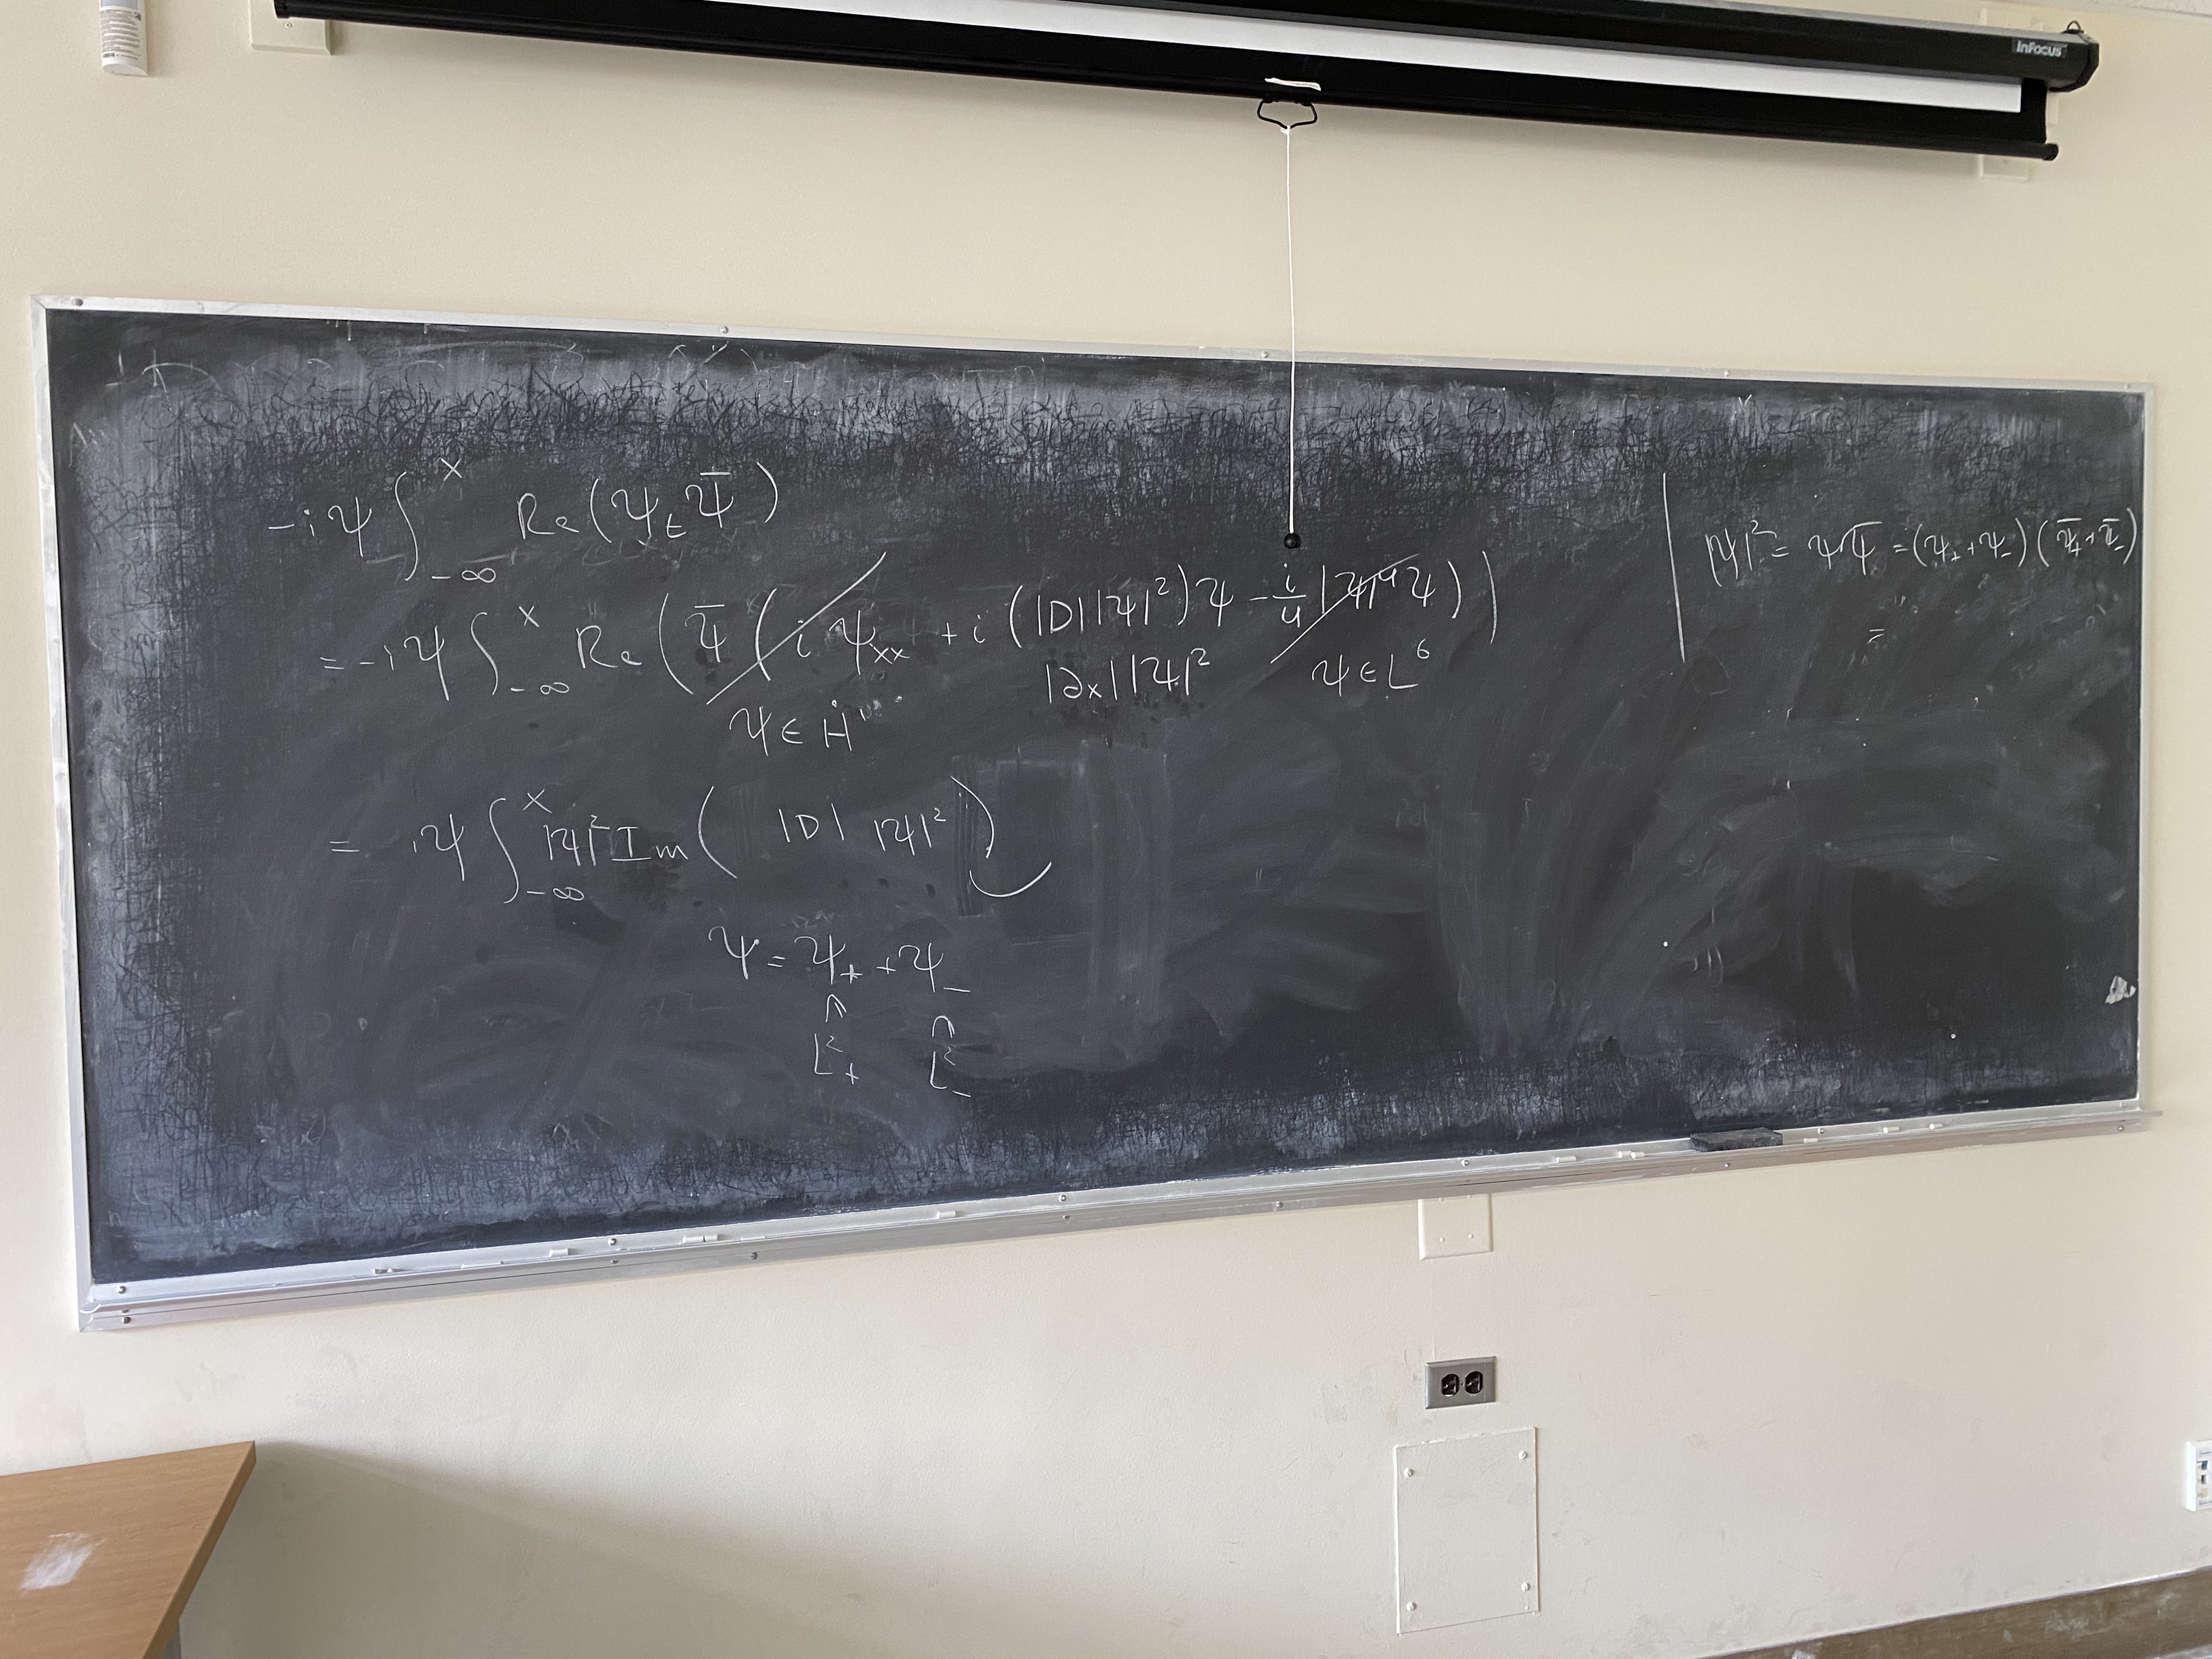 InFocus
-iψ ∫_{-∞}^{x} Re(ψ_t ψ̄)
= -iψ ∫_{-∞}^{x} Re(ψ̄(iψ_xx + i(|D||ψ|²)ψ - i/4 |ψ|⁴ψ))
|∂x||ψ|²
ψ ∈ L⁶
ψ ∈ H¹
= iψ ∫_{-∞}^{x} |ψ|² Im(|D| |ψ|²)
ψ = ψ₊ + ψ₋
∩ ∩
L²₊ L²₋
|ψ|² = ψψ̄ = (ψ₊+ψ₋)(ψ̄₊+ψ̄₋)
=